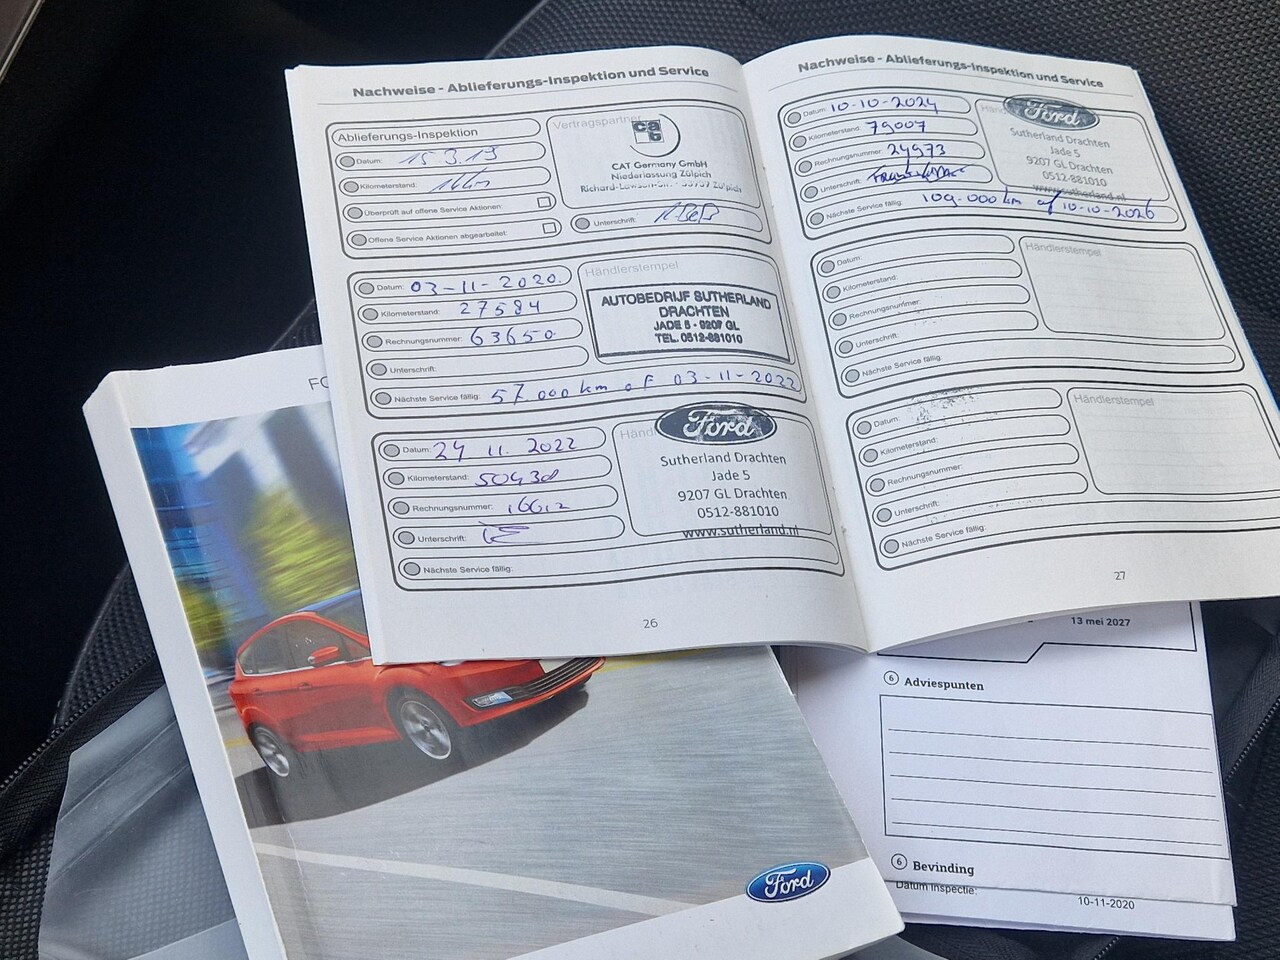 Nachweise - Ablieferungs-Inspektion und Service
Ablieferungs-Inspektion
Datum: 15.3.19
Kilometerstand: 16 km
Überprüft auf offene Service Aktionen:
Offene Service Aktionen abgearbeitet:
Vertragspartner
cat
CAT Germany GmbH
Niederlassung Zülpich
Zülpich
Unterschrift:
Datum: 03-11-2020.
Kilometerstand: 27584
Rechnungsnummer: 63650
Unterschrift:
Nächste Service fällig: 57.000 km of 03-11-2022
Händlerstempel
AUTOBEDRIJF SUTHERLAND
DRACHTEN
JADE 5 - 9207 GL
TEL. 0512-881010
Datum: 24 11. 2022
Kilometerstand: 50430
Rechnungsnummer:
Unterschrift:
Nächste Service fällig:
Händ
Ford
Sutherland Drachten
Jade 5
9207 GL Drachten
0512-881010
www.sutherland.nl
26
Nachweise - Ablieferungs-Inspektion und Service
Datum: 10-10-2024
Kilometerstand: 79007
Rechnungsnummer: 24973
Unterschrift:
Nächste Service fällig: 109.000 km of 10-10-2026
Ford
Sutherland Drachten
Jade 5
9207 GL Drachten
0512-881010
www.sutherland.nl
Datum:
Kilometerstand:
Rechnungsnummer:
Unterschrift:
Nächste Service fällig:
Händlerstempel
Datum:
Kilometerstand:
Rechnungsnummer:
Unterschrift:
Nächste Service fällig:
Händlerstempel
27
FO
Ford
13 mei 2027
6 Adviespunten
6 Bevinding
Datum inspectie:
10-11-2020